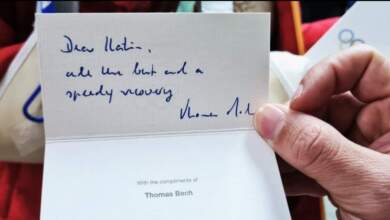 Dear Katin,
all the best and a
speedy recovery
Thomas
With the compliments of
Thomas Bach